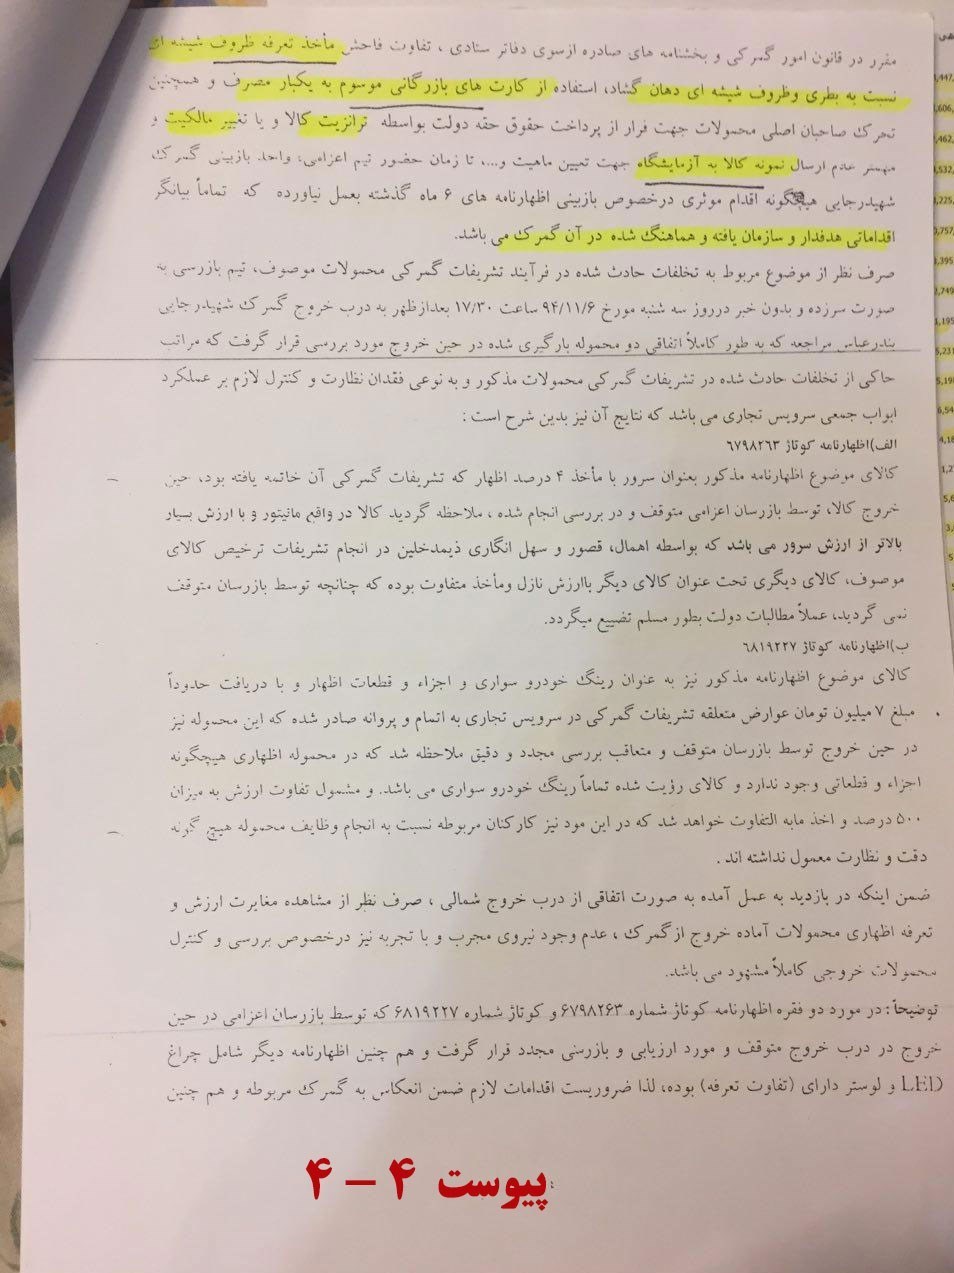 مقرر در قانون امور گمرکی و بخشنامه های صادره ازسوی دفاتر ستادی ، تفاوت فاحش مأخذ تعرفه ظروف شیشه ای
نسبت به بطری وظروف شیشه ای دهان گشاد، استفاده از کارت های بازرگانی موسوم به یکبار مصرف و همچنین
تحرک صاحبان اصلی محمولات جهت فرار از پرداخت حقوق حقه دولت بواسطه ترانزیت کالا و یا تغییر مالکیت و
مهمتر عدم ارسال نمونه کالا به آزمایشگاه جهت تعیین ماهیت و...، تا زمان حضور تیم اعزامی، واحد بازبینی گمرک
شهیدرجایی هیچگونه اقدام موثری درخصوص بازبینی اظهارنامه های ۶ ماه گذشته بعمل نیاورده که تماماً بیانگر
اقداماتی هدفدار و سازمان یافته و هماهنگ شده در آن گمرک می باشد.
صرف نظر از موضوع مربوط به تخلفات حادث شده در فرآیند تشریفات گمرکی محمولات موصوف، تیم بازرسی به
صورت سرزده و بدون خبر درروز سه شنبه مورخ ۹۴/۱۱/۶ ساعت ۱۷/۳۰ بعدازظهر به درب خروج گمرک شهیدرجایی
بندرعباس مراجعه که به طور کاملاً اتفاقی دو محموله بارگیری شده در حین خروج مورد بررسی قرار گرفت که مراتب
حاکی از تخلفات حادث شده در تشریفات گمرکی محمولات مذکور و به نوعی فقدان نظارت و کنترل لازم بر عملکرد
ابواب جمعی سرویس تجاری می باشد که نتایج آن نیز بدین شرح است :
الف)اظهارنامه کوتاژ ۶۷۹۸۲۶۳
کالای موضوع اظهارنامه مذکور بعنوان سرور با مأخذ ۴ درصد اظهار که تشریفات گمرکی آن خاتمه یافته بود، حین
خروج کالا، توسط بازرسان اعزامی متوقف و در بررسی انجام شده ، ملاحظه گردید کالا در واقع مانیتور و با ارزش بسیار
بالاتر از ارزش سرور می باشد که بواسطه اهمال، قصور و سهل انگاری ذیمدخلین در انجام تشریفات ترخیص کالای
موصوف، کالای دیگری تحت عنوان کالای دیگر باارزش نازل ومأخذ متفاوت بوده که چنانچه توسط بازرسان متوقف
نمی گردید، عملاً مطالبات دولت بطور مسلم تضییع میگردد.
ب)اظهارنامه کوتاژ ۶۸۱۹۲۲۷
کالای موضوع اظهارنامه مذکور نیز به عنوان رینگ خودرو سواری و اجزاء و قطعات اظهار و با دریافت حدوداً
مبلغ ۷ میلیون تومان عوارض متعلقه تشریفات گمرکی در سرویس تجاری به اتمام و پروانه صادر شده که این محموله نیز
در حین خروج توسط بازرسان متوقف و متعاقب بررسی مجدد و دقیق ملاحظه شد که در محموله اظهاری هیچگونه
اجزاء و قطعاتی وجود ندارد و کالای رؤیت شده تماماً رینگ خودرو سواری می باشد. و مشمول تفاوت ارزش به میزان
۵۰۰ درصد و اخذ مابه التفاوت خواهد شد که در این مود نیز کارکنان مربوطه نسبت به انجام وظایف محموله هیچ گونه
دقت و نظارت معمول نداشته اند .
ضمن اینکه در بازدید به عمل آمده به صورت اتفاقی از درب خروج شمالی ، صرف نظر از مشاهده مغایرت ارزش و
تعرفه اظهاری محمولات آماده خروج ازگمرک ، عدم وجود نیروی مجرب و با تجربه نیز درخصوص بررسی و کنترل
محمولات خروجی کاملاً مشهود می باشد.
توضیحاً: در مورد دو فقره اظهارنامه کوتاژ شماره ۶۷۹۸۲۶۳ و کوتاژ شماره ۶۸۱۹۲۲۷ که توسط بازرسان اعزامی در حین
خروج در درب خروج متوقف و مورد ارزیابی و بازرسی مجدد قرار گرفت و هم چنین اظهارنامه دیگر شامل چراغ
LED و لوستر دارای (تفاوت تعرفه) بوده، لذا ضروریست اقدامات لازم ضمن انعکاس به گمرک مربوطه و هم چنین
پیوست ۴ – ۴